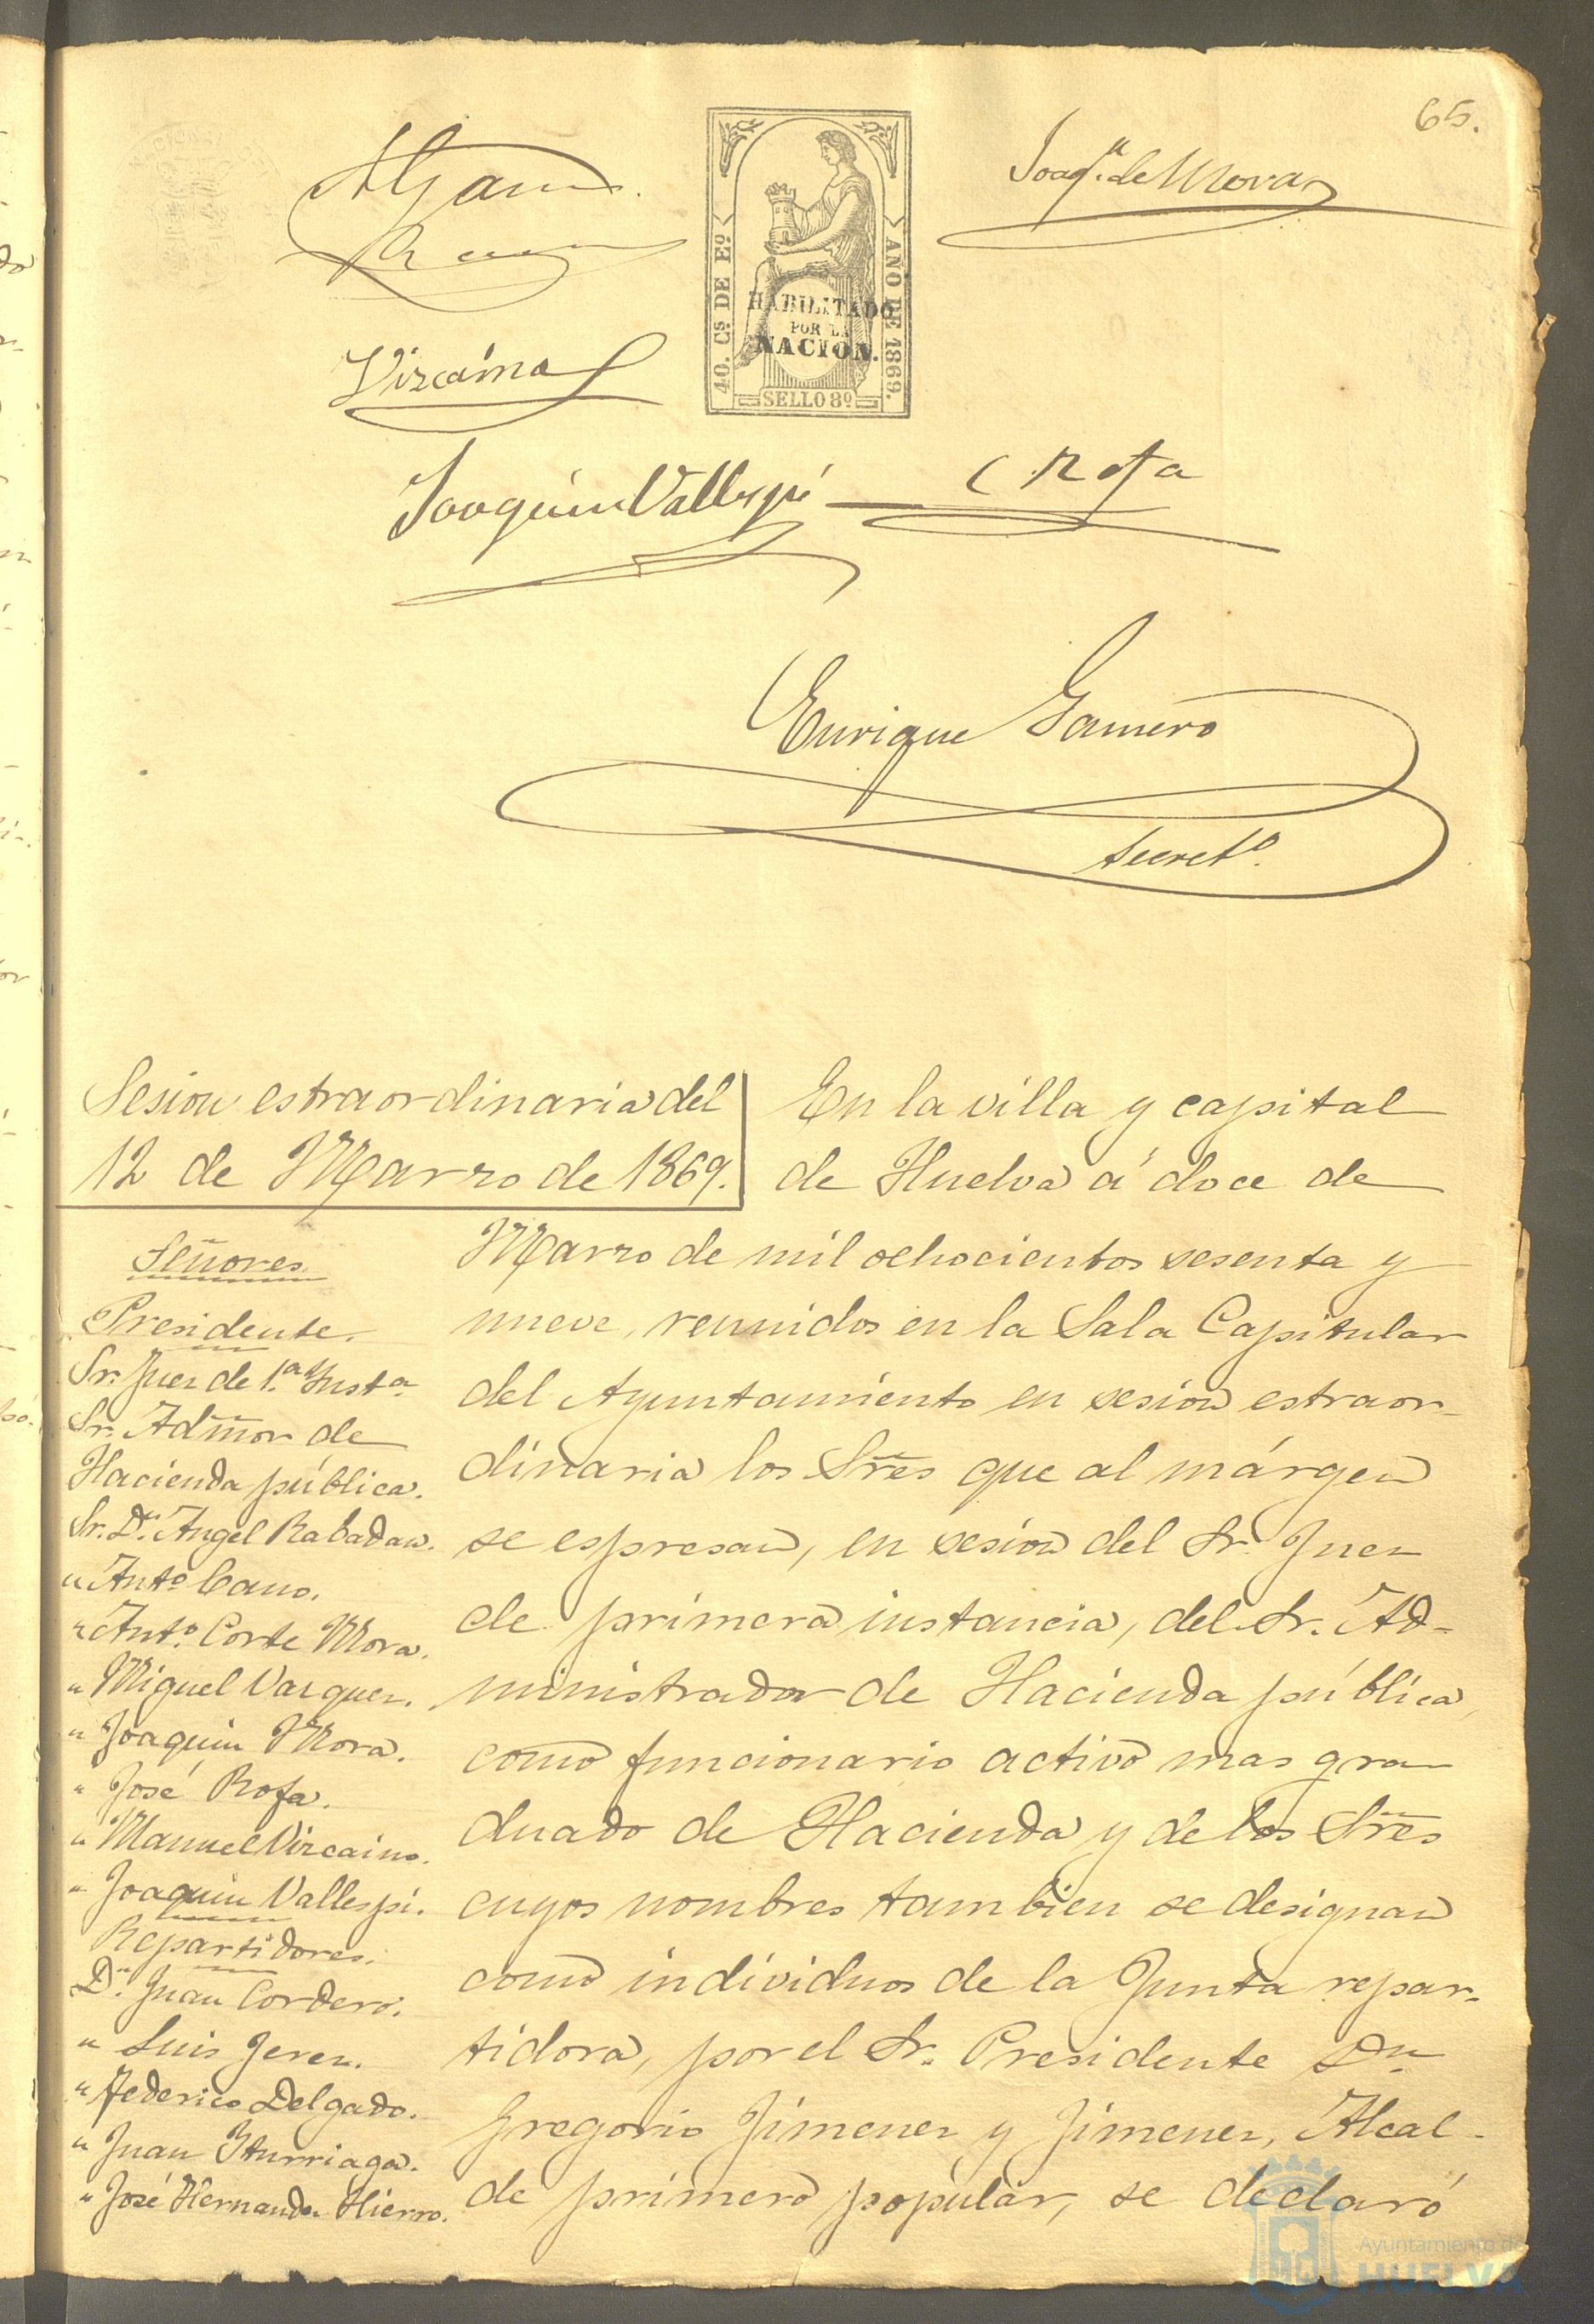 65.
Joaqn. de Mora
40. Cs DE Eo
AÑO DE 1869.
HABILITADO
POR LA
NACION.
SELLO 8º
Vizcaino
Joaquin Vallespí
Rofa
Enrique Gamero
Secretº.
Sesion estraordinaria del
12 de Marzo de 1869.
Señores
Presidente.
Sr. Juez de 1.ª Instª
Sr. Admor de
Hacienda pública.
Sr. Dn. Angel Rabadan.
" Antº Cano.
" Antº. Corte Mora.
" Miguel Vazquez.
" Joaquin Mora.
" José Rofa.
" Manuel Vizcaino.
" Joaquin Vallespí.
Repartidores.
Dn. Juan Cordero.
" Luis Jerez.
" Federico Delgado.
" Juan Iturriaga.
" José Hernandz. Hierro.
En la villa y capital
de Huelva á doce de
Marzo de mil ochocientos sesenta y
nueve, reunidos en la Sala Capitular
del Ayuntamiento en sesion estraor-
dinaria los Sres que al márgen
se espresan, en sesion del Sr. Juez
de primera instancia, del Sr. Ad-
ministrador de Hacienda pública,
como funcionario activo mas gra-
duado de Hacienda y de los Sres
cuyos nombres tambien se designan
como individuos de la Junta repar-
tidora, por el Sr. Presidente Dn
Gregorio Jimenez y Jimenez, Alcal-
de primero popular, se declaró
Ayuntamiento de
HUELVA